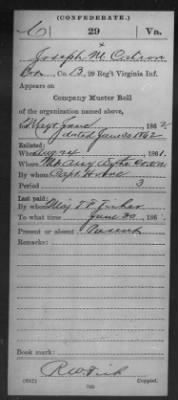 (CONFEDERATE.)
29 Va.
Joseph M.
Co. B, 29 Reg't Virginia Inf.
Appears on
Company Muster Roll
of the organization named above,
for May & June, 1862
dated June 30 1862
Enlisted:
When Aug 24, 1861.
Where Mt Airy
By whom Capt
Period 3
Last paid:
By whom Maj.
To what time June 30, 186
Present or absent Present
Remarks:
Book mark:
(642) Copyist.